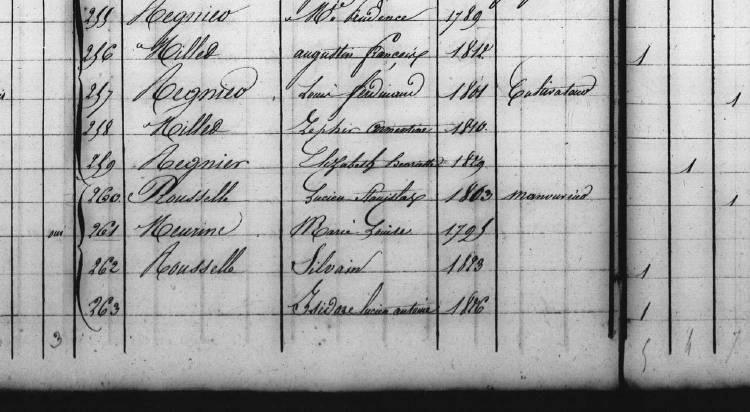 255 Regnier Mie prudence 1789
256 Milled augustin françois 1812 1
257 Regnier Louis ferdinand 1801 Cultivateur 1
258 Milled Zephir 1810
259 Regnier Elizabeth 1829 1
260 Rousselle Lucien Stanislas 1803 manouvrier 1
oui 261 Meurine Marie Louise 1795
262 Rousselle Silvain 1823 1
263 Isidore lucien antoine 1826 1
3 5 4 7